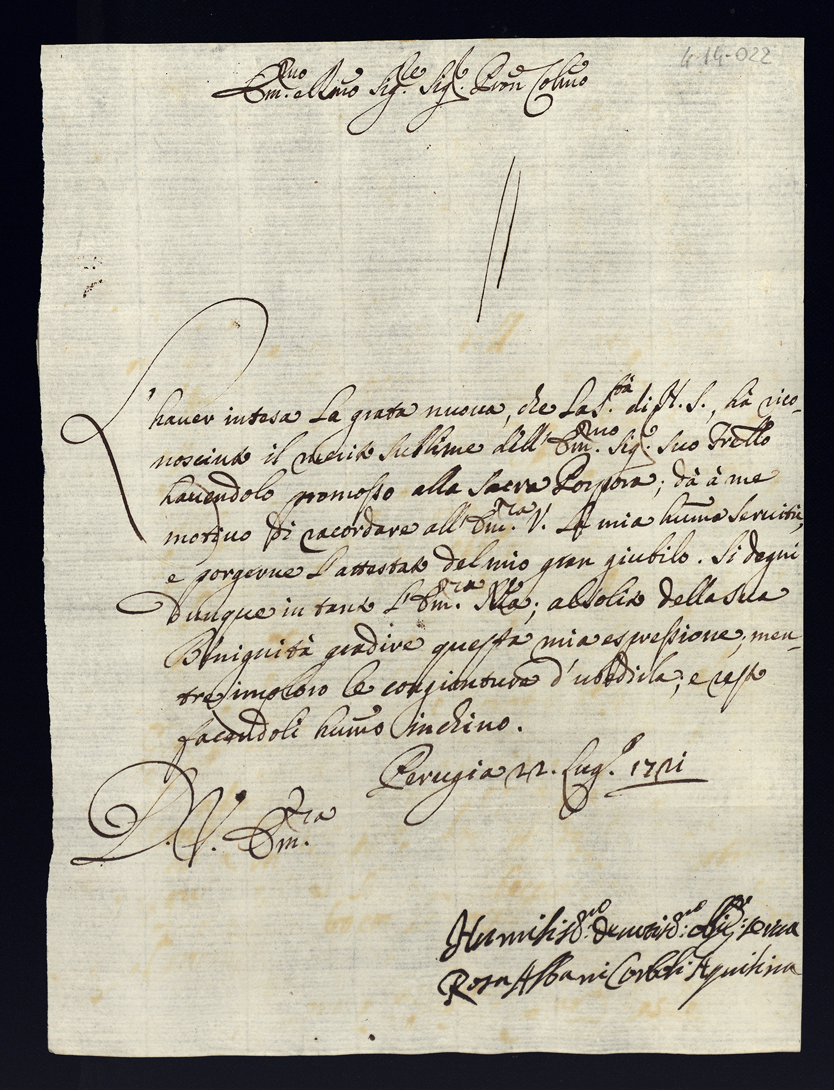 4-14-022
Em.mo e Rmo Sig.re Sig.r Pron Colmo
L'haver intesa la grata nuova, che la S.tà di N. S., hà rico-
nosciuto il merito sublime dell'Em.mo Sig.r suo Frello
havendolo promosso alla Sacra Porpora; dà à me
motivo di racordare all'Em.za V. la mia huma servitù,
e porgerne l'attestato del mio gran giubilo. Si degni
dunque in tanto l'Em.za Vra; absolita della sua
Benignità gradire questa mia espressione; men-
tre imploro le congionture d'ubbidirla; e resto
facendoli humo inchino.
Perugia 22. Lug.o 1721
D. V. Em.za
Humiliss.ma devotiss.ma Obblig: serva
Rosa Albani Aquilina